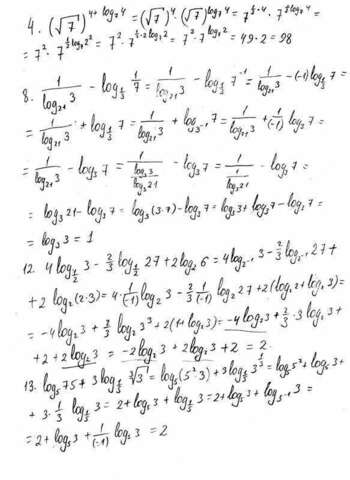 4. (√7)^{4+log₇4} = (√7)⁴·(√7)^{log₇4} = 7^{½·4}·7^{½log₇4} =
= 7²·7^{½log₇2²} = 7²·7^{½·2log₇2} = 7²·7^{log₇2} = 49·2 = 98
8. 1/log₂₁3 − log_{1/3} 1/7 = 1/log₂₁3 − log_{1/3} 7⁻¹ = 1/log₂₁3 − (−1)log_{1/3} 7 =
= 1/log₂₁3 + log_{1/3} 7 = 1/log₂₁3 + log_{3⁻¹} 7 = 1/log₂₁3 + 1/(−1) log₃7 =
= 1/log₂₁3 − log₃7 = 1/(log₃3/log₃21) − log₃7 = 1/(1/log₃21) − log₃7 =
= log₃21 − log₃7 = log₃(3·7) − log₃7 = log₃3 + log₃7 − log₃7 =
= log₃3 = 1
12. 4 log_{1/2} 3 − 2/3 log_{1/2} 27 + 2log₂6 = 4log_{2⁻¹} 3 − 2/3 log_{2⁻¹} 27 +
+ 2 log₂(2·3) = 4·1/(−1) log₂3 − 2/3·1/(−1) log₂27 + 2(log₂2 + log₂3) =
= −4log₂3 + 2/3 log₂3³ + 2(1 + log₂3) = −4log₂3 + 2/3·3 log₂3 +
+ 2 + 2log₂3 = −2log₂3 + 2log₂3 + 2 = 2.
13. log₅75 + 3 log_{1/5} ∛3 = log₅(5²·3) + 3log_{1/5} 3^{1/3} = log₅5² + log₅3 +
+ 3·1/3 log_{1/5} 3 = 2 + log₅3 + log_{1/5} 3 = 2 + log₅3 + log_{5⁻¹} 3 =
= 2 + log₅3 + 1/(−1) log₅3 = 2